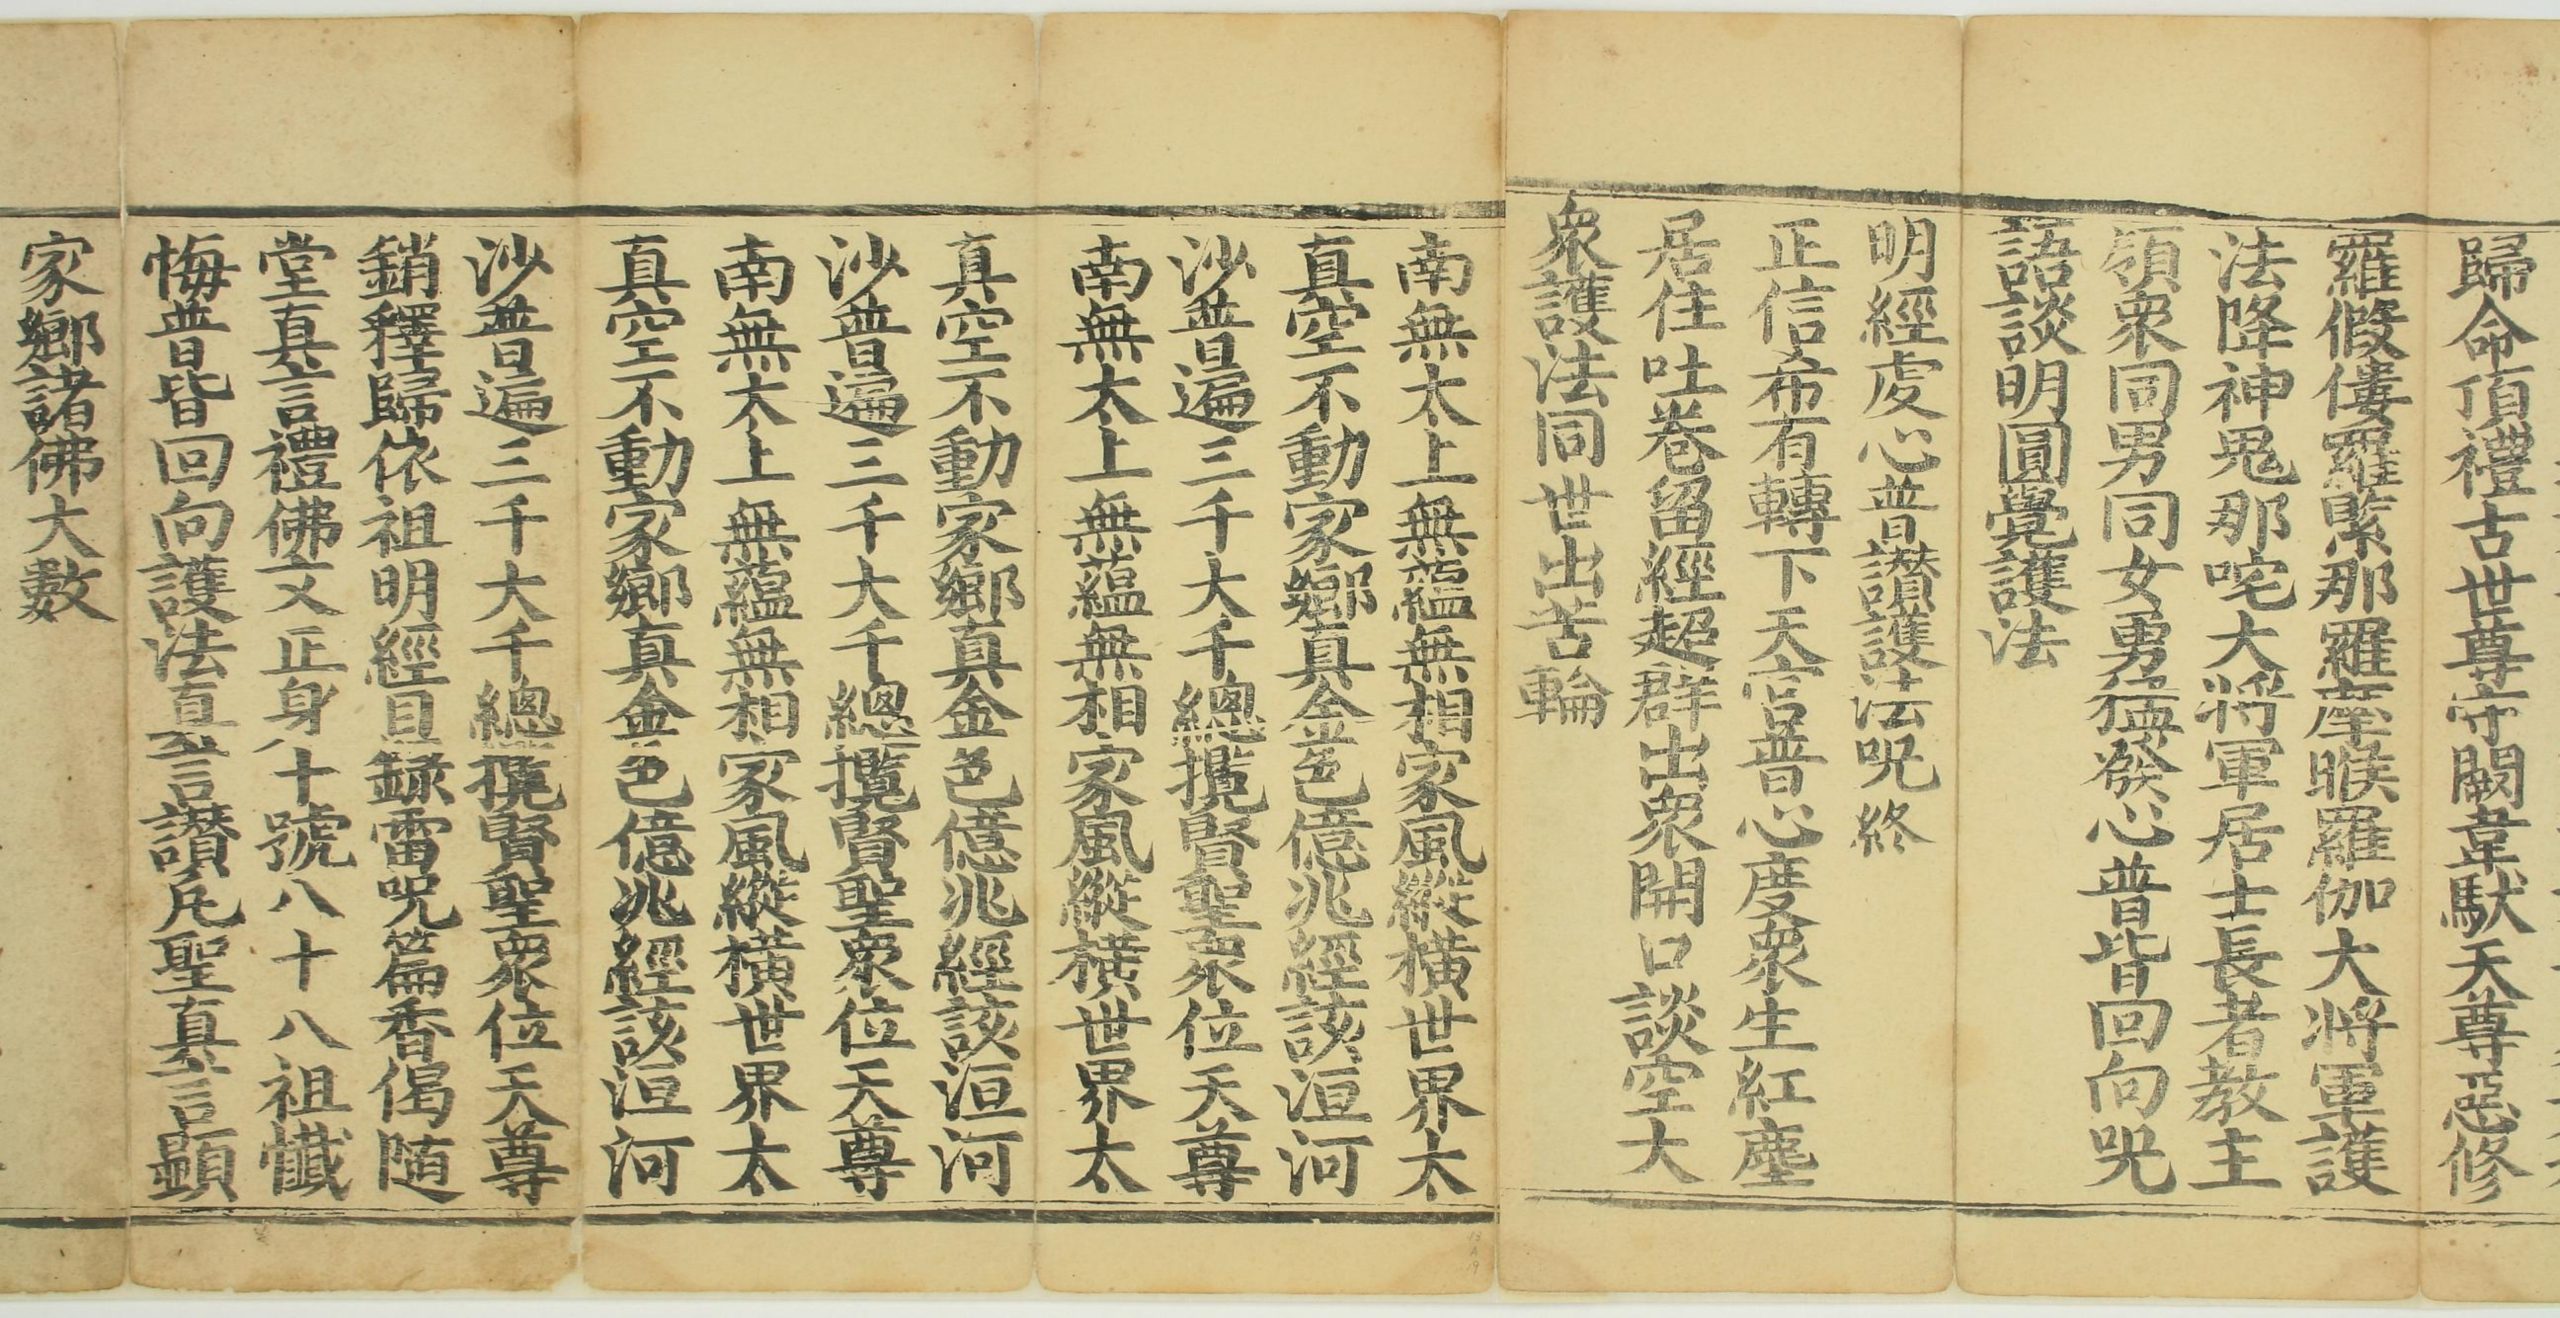 歸命頂禮古世尊守闕韋馱天尊惡修
羅假僂羅緊那羅摩睺羅伽大將軍護
法降神鬼那咤大將軍居士長者教主
領衆同男同女勇猛發心普皆回向咒
語談明圓覺護法
明經虔心普讃護法咒終
正信希有轉下天宫普心度衆生紅塵
居住吐卷留經超群出衆開口談空大
衆護法同世出苦輪
南無太上無蘊無相家風縱横世界太
真空不動家鄉真金色億兆經該洹河
沙普遍三千大千總攬賢聖衆位天尊
南無太上無蘊無相家風縱横世界太
真空不動家鄉真金色億兆經該洹河
沙普遍三千大千總攬賢聖衆位天尊
南無太上無蘊無相家風縱横世界太
真空不動家鄉真金色億兆經該洹河
沙普遍三千大千總攬賢聖衆位天尊
銷釋歸依祖明經目録雷咒篇香偈随
堂真言禮佛文正身八十號八十八祖懺
悔普皆回向護法直至言讃凡聖真言顯
家鄉諸佛大數